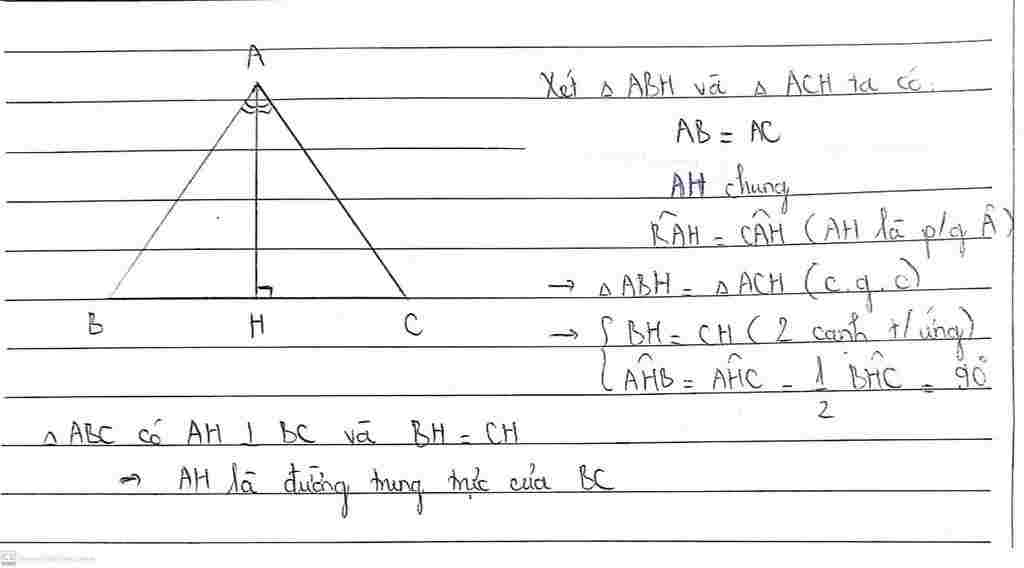 A
B H C
Xét △ ABH và △ ACH ta có:
AB = AC
AH chung
B̂AH = CÂH (AH là p/g Â)
→ △ ABH = △ ACH (c.g.c)
→ { BH = CH (2 cạnh t/ứng)
AĤB = AĤC = 1/2 BĤC = 90°
△ ABC có AH ⊥ BC và BH = CH
→ AH là đường trung trực của BC